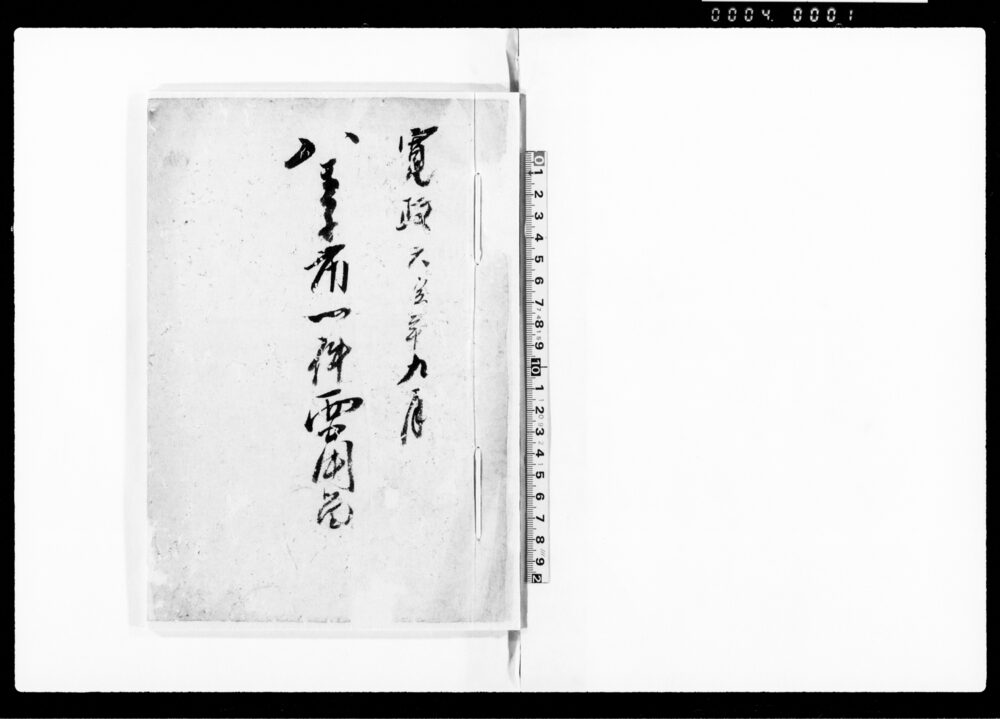 0004 0001
寛政六寅年九月
八王子一件要用留
0 1 2 3 4 5 6 7 8 9 10 1 2 3 4 5 6 7 8 9 2